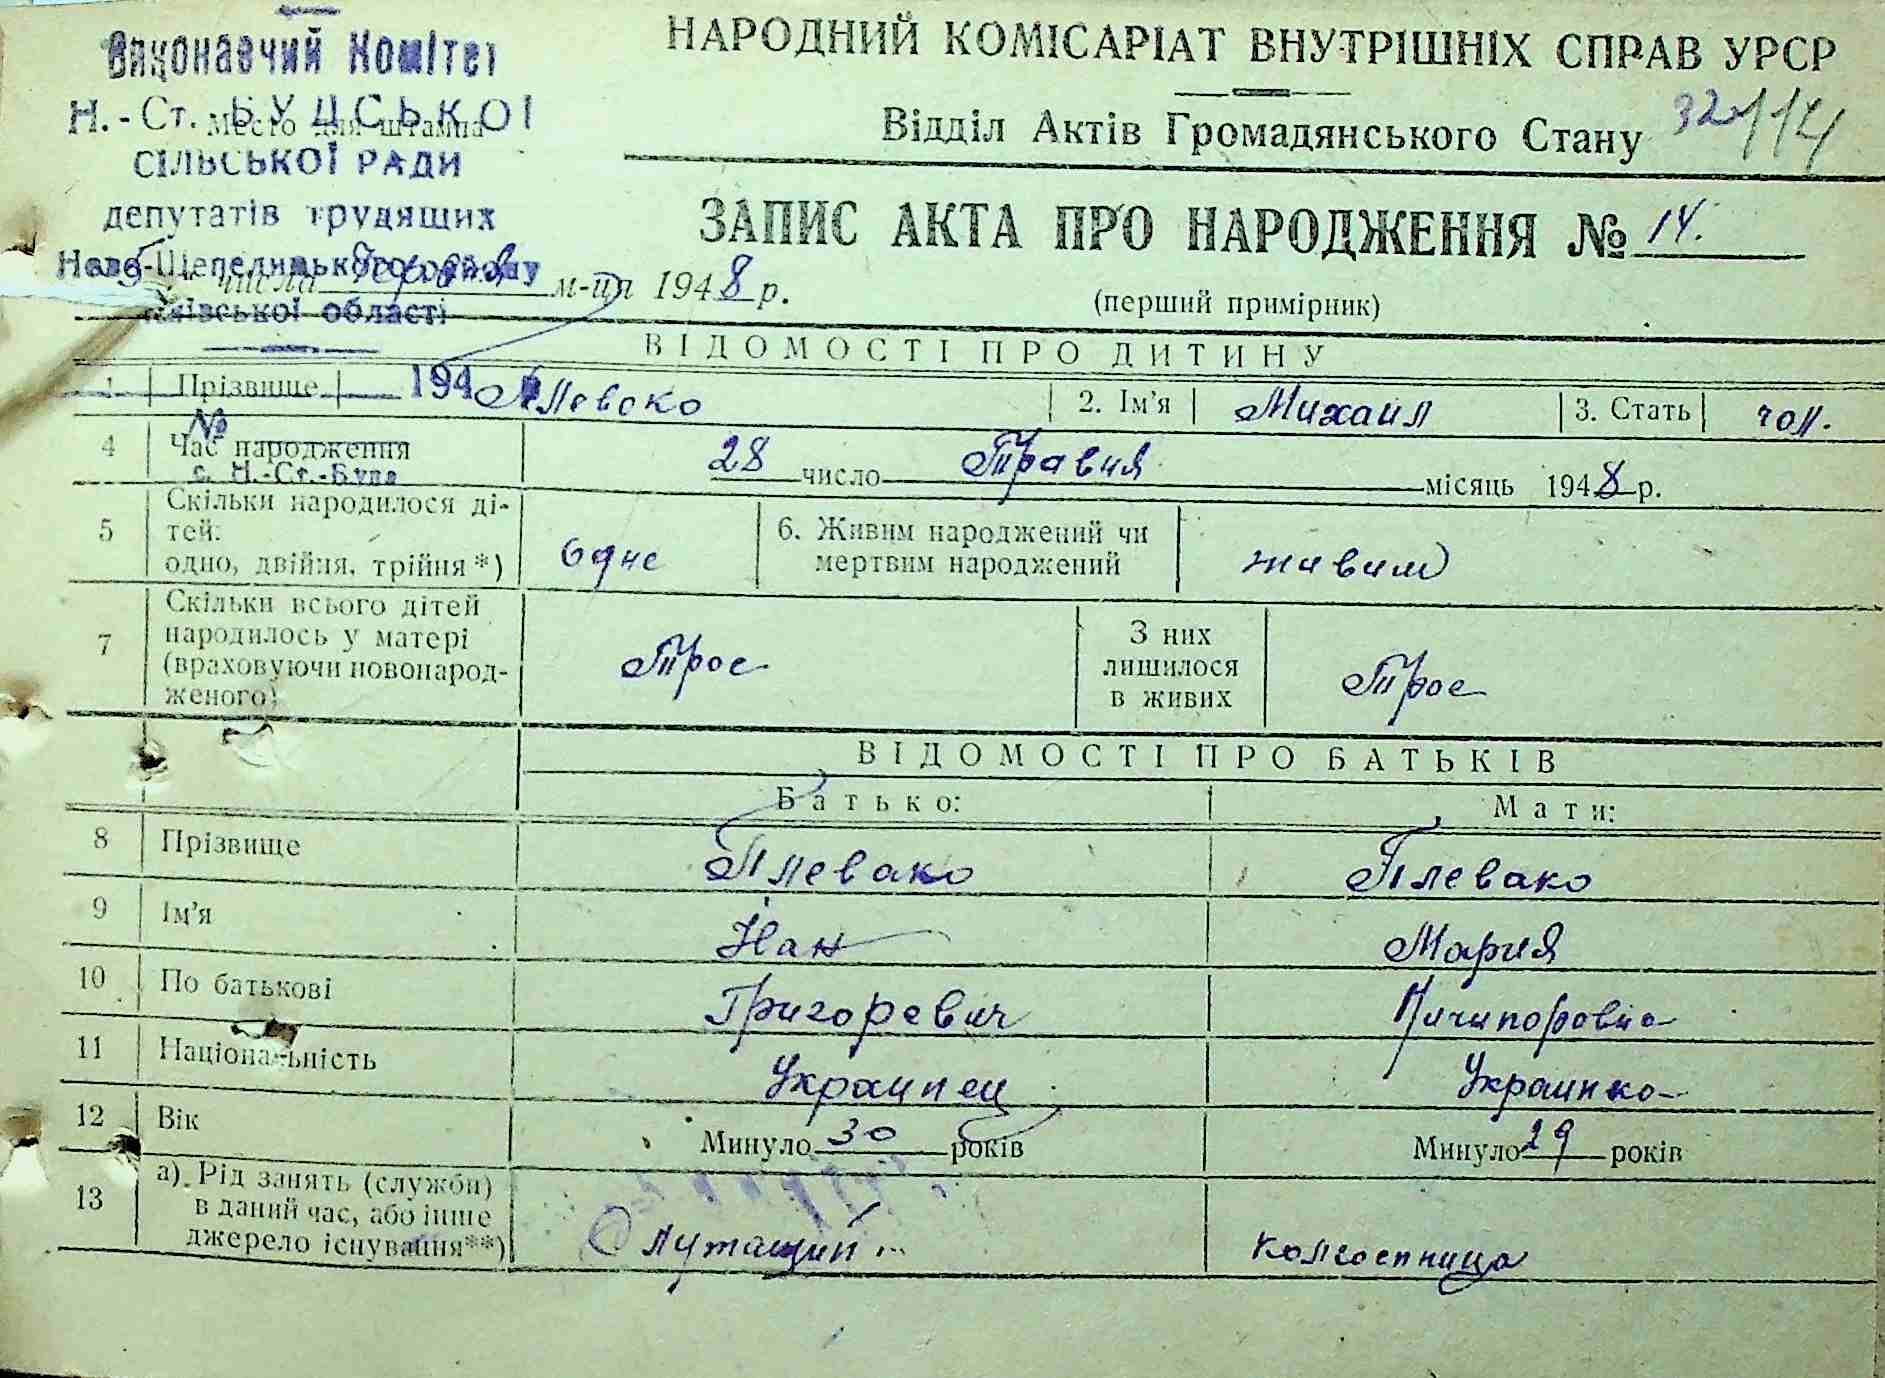 Виконавчий Комітет
Н.-Ст. БУДСЬКОЇ
Место для штампа
СІЛЬСЬКОЇ РАДИ
депутатів трудящих
Ново-Шепелицького району
Київської області
194
№
с. Н.-Ст.-Буда
НАРОДНИЙ КОМІСАРІАТ ВНУТРІШНІХ СПРАВ УРСР
Відділ Актів Громадянського Стану
ЗАПИС АКТА ПРО НАРОДЖЕННЯ № 14.
числа Червня м-ця 1948 р.
(перший примірник)
ВІДОМОСТІ ПРО ДИТИНУ
1 Прізвище Плевоко 2. Ім'я Михаил 3. Стать чол.
4 Час народження 28 число Травня місяць 1948 р.
5 Скільки народилося ді-
тей:
одно, двійня, трійня *) одне
6. Живим народжений чи
мертвим народжений живим
7 Скільки всього дітей
народилось у матері
(враховуючи новонарод-
женого) Трое
З них
лишилося
в живих Трое
ВІДОМОСТІ ПРО БАТЬКІВ
Батько: Мати:
8 Прізвище Плевако Плевако
9 Ім'я Йан Мария
10 По батькові Григоревич Ничипоровна
11 Національність Украинец Украинко
12 Вік Минуло 30 років Минуло 29 років
13 а) Рід занять (служби)
в даний час, або інше
джерело існування **) колгоспница